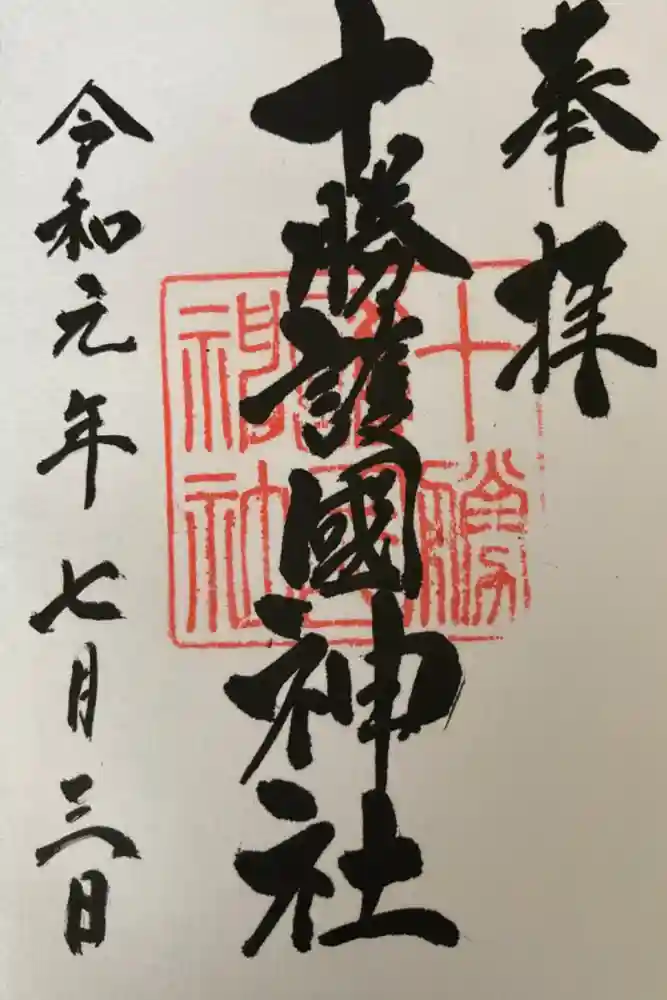 奉拝
十勝護國神社
十勝護國神社
令和元年七月三日